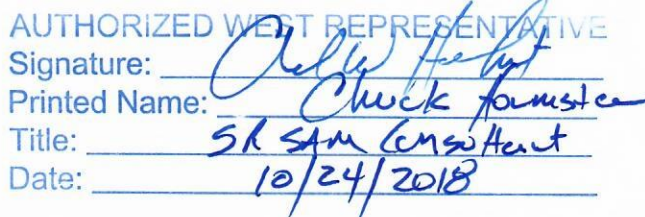 AUTHORIZED WEST REPRESENTATIVE
Signature:
Printed Name: Chuck
Title: SR SAM Consultant
Date: 10/24/2018